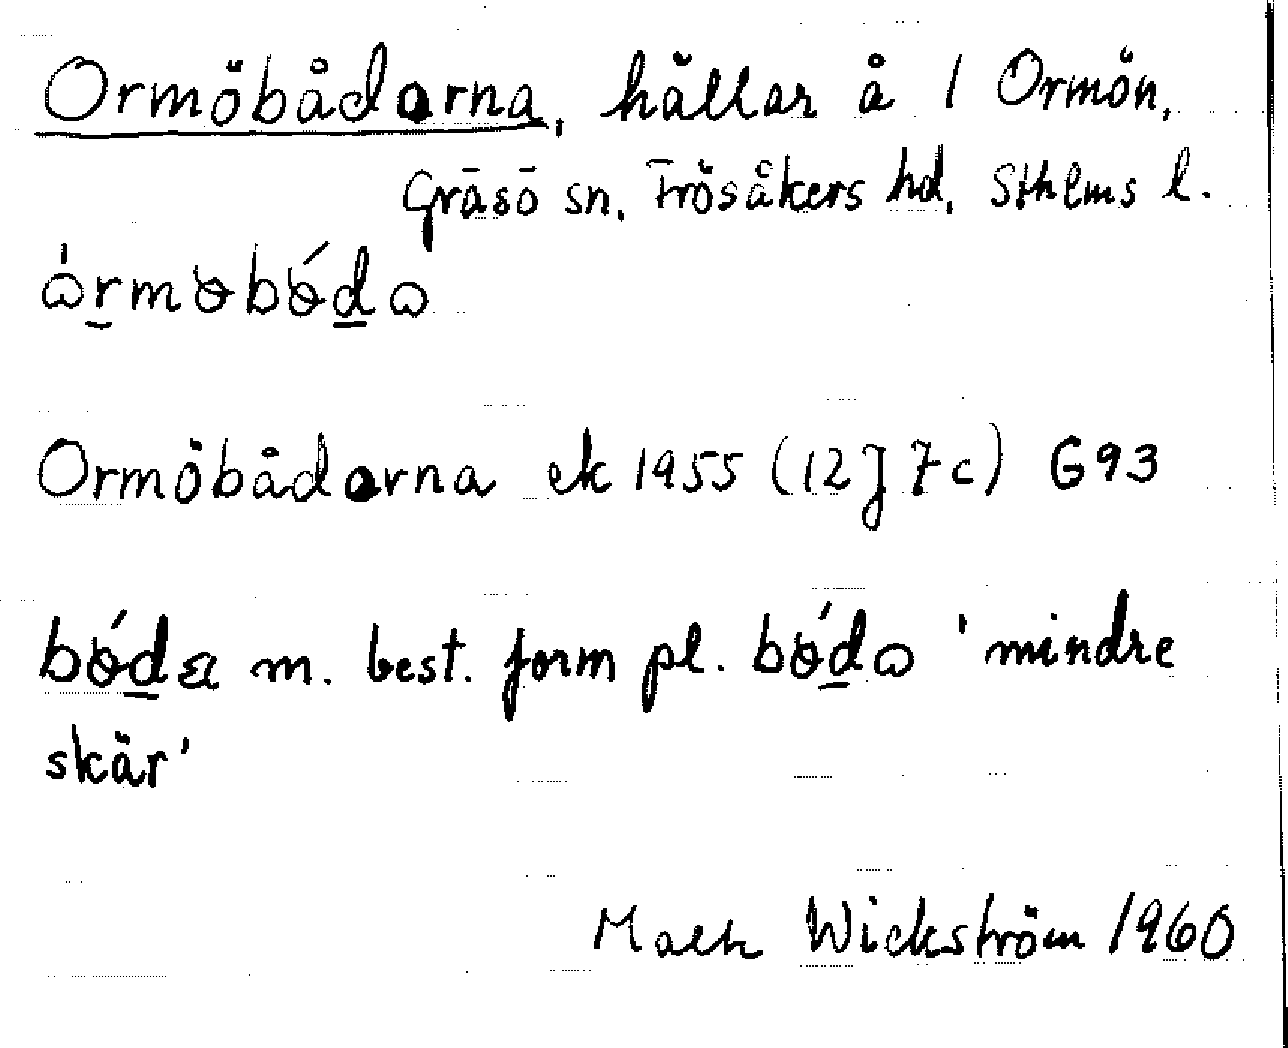 Ormöbådarna, hällar å 1 Ormön,
Gräsö sn, Frösåkers hd, Sthlms l.
Ormöbådarna ek 1955 (12j 7c) G93
m. best. form pl. 'mindre
skär'
Wickström 1960